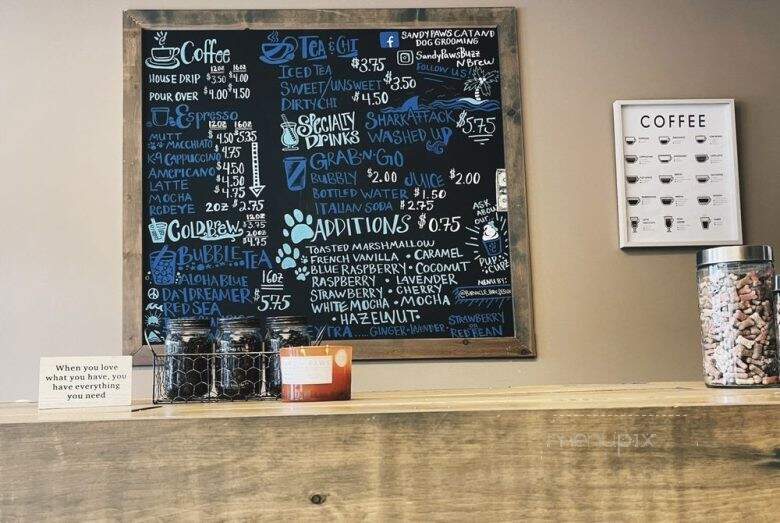 Coffee
12oz 16oz
HOUSE DRIP $3.50 $4.00
POUR OVER $4.00 $4.50
Espresso
12oz 16oz
MUTT MACCHIATO $4.50 5.35
K9 CAPPUCCINO $4.75
AMERICANO $4.50
LATTE $4.50
MOCHA $4.75
REDEYE 2oz $2.75
COLD BREW
12oz $3.75
20oz $4.75
BUBBLE TEA
16oz
ALOHA BLUE
DAYDREAMER $5.75
RED SEA
TEA & CHI
ICED TEA $3.75
SWEET/UNSWEET $3.50
DIRTY CHI $4.50
SPECIALTY DRINKS
SHARK ATTACK
WASHED UP $5.75
GRAB-N-GO
BUBBLY $2.00 JUICE $2.00
BOTTLED WATER $1.50
ITALIAN SODA $2.75
ADDITIONS $0.75
TOASTED MARSHMALLOW
FRENCH VANILLA • CARAMEL
BLUE RASPBERRY • COCONUT
RASPBERRY • LAVENDER
STRAWBERRY • CHERRY
WHITE MOCHA • MOCHA
• HAZELNUT •
EXTRA.... GINGER • LAVENDER • STRAWBERRY
RED BEAN
SANDY PAWS CAT AND
DOG GROOMING
SandyPawsBuzz
N Brew
FOLLOW US!
ASK
ABOUT
OUR
PUP
CUPZ
MENU BY:
COFFEE
When you love
what you have, you
have everything
you need
menupix